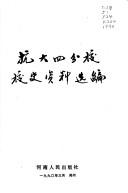 抗大四分校
校史资料选编
河南人民出版社
一九九〇年三月 郑州